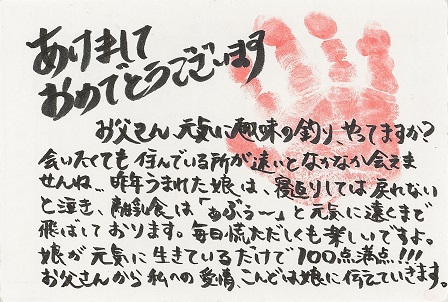 あけまして
おめでとうございます
お父さん、元気に趣味の釣り、やってますか?
会いたくても住んでいる所が遠いとなかなか会えま
せんね。昨年うまれた娘は、寝返りしては戻れない
と泣き、離乳食は「ぁぶぅ〜」と元気に遠くまで
飛ばしております。毎日慌ただしくも楽しいですよ。
娘が元気に生きているだけで100点満点!!!
お父さんから私への愛情、こんどは娘に伝えていきます。